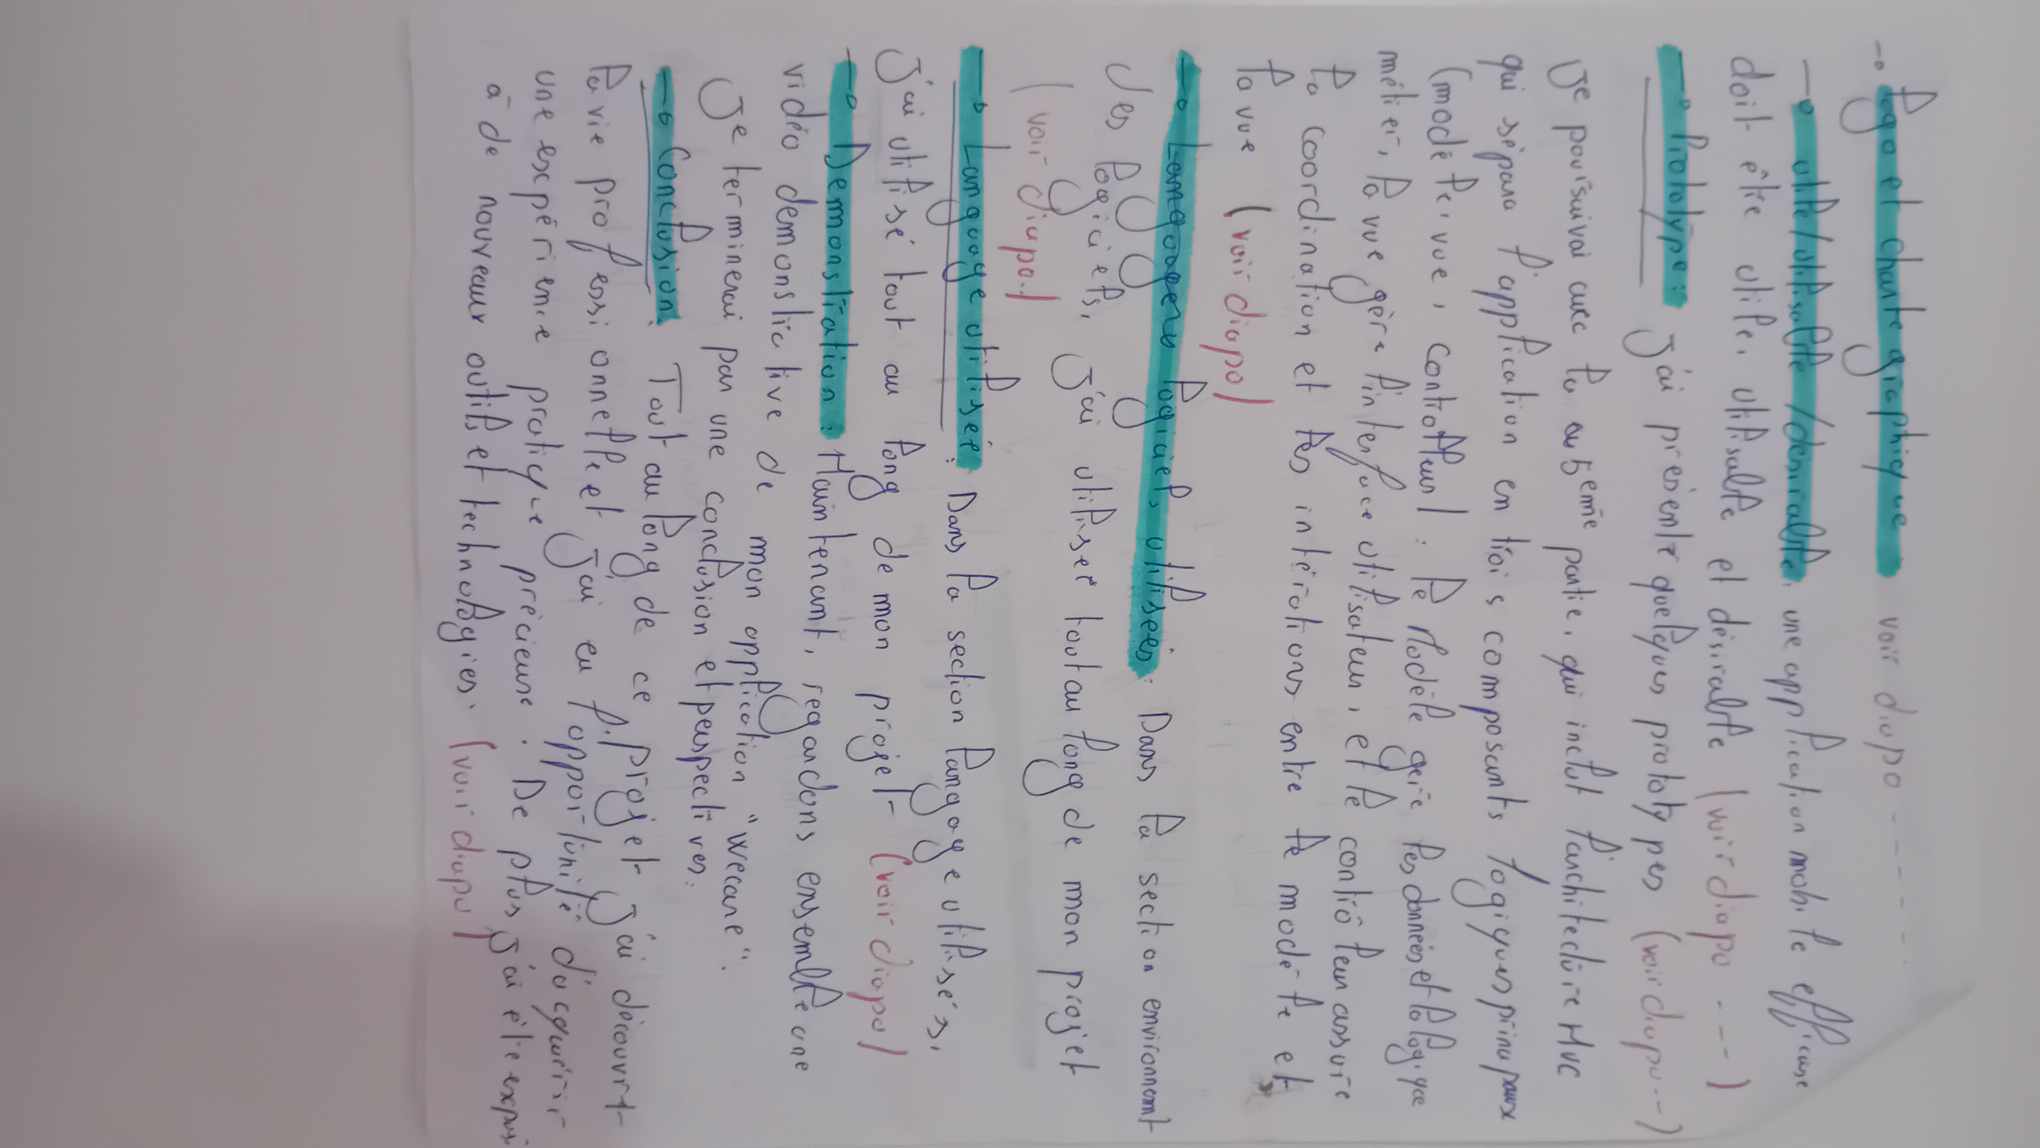 → logo et charte graphique voir diapo ------
→ utile/utilsalble/desiralble, une application mobile efficase
doit être utile, utilisalble et désiralble (voir diapo ---)
→ Prototype: J'ai présenté quelques prototypes (voir diapo --)
Je poursuivai avec la subeme partie, qui inclut l'architecture MVC
qui sépara l'application en trois composants logiques principaux
(modèle, vue, controlleur) : le Modèle gère les données et la logique
métier, la vue gère l'interface utilisateur, et le contrôleur assure
la coordination et les intérations entre le modèle et
la vue (voir diapo)
→ Langagers logiciels utilisées: Dans la section environnemt
des logiciels, J'ai utilisée tout au long de mon projet
(voir diapo)
→ Language utilisée: Dans la section langage utilisés,
J'ai utilisé tout au long de mon projet (voir diapo)
→ Demonstration: Maintenant, regardons ensemble une
vidéo demonstrative de mon application "wecare".
Je terminerai par une conclusion et perspectives.
→ Conclusion: Tout au long de ce projet j'ai découvrt
la vie professionnelle et J'ai eu l'opportunité d'acquérir
une expérience pratique précieuse. De plus J'ai été expos
à de nouveaux outils et technologies. (voir diapo)